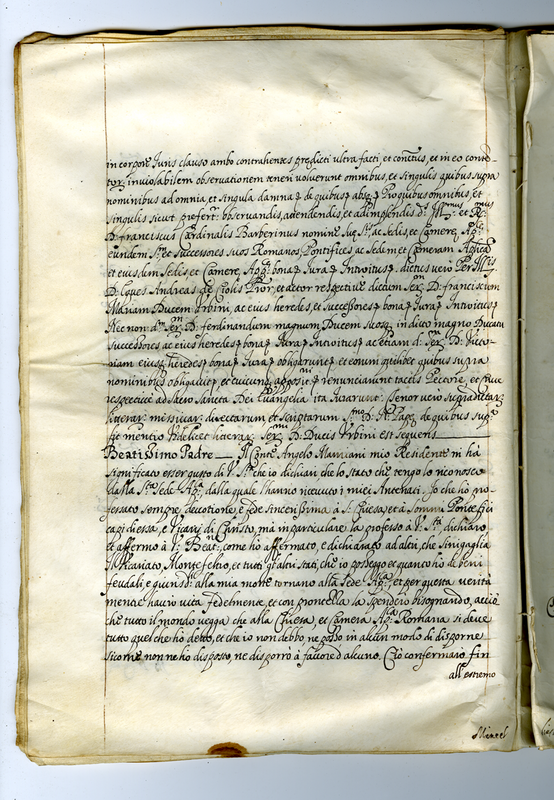 in corpore Juris clauso ambo contrahentes predicti ultra facti, et conctus, et in eo conte-
tor; inviolabilem observationem teneri voluerunt omnibus, et singulis quibus supra
nominibus ad omnia et singula damna de quibus absq; Pro quibus omnibus, et
singulis sicut prefert: observandis, attendendis, et adimplendis d.s Ill.mus et R.mus
D. franciscus Cardinalis Barberinus nomine Suę S.tis ac sedis, et Camerę Ap.lię
eundem S.m et successores suos Romanos, Pontifices ac sedem et Cameram Aplicā
et eiusdem Sedis et Camerę App.cę bona Jura Introitus, dictus vero Per Ill.is
D. Eques Andreas de Ciolis Prior, et actor respective dictum Ser.m D. franciscum
Mariam Ducem Urbini, ac eius heredes, et successores bona Jura Introitus
Nec non d.m Ser.m D. ferdinandum magnum Ducem suosq; in dicto magno Ducatu
successores ac eius heredes bona Jura Introitus ac etiam d. Ser.m D. Victo-
riam eiusq; heredes bona Jura obligarunt et eorum quilibet quibus supra
nominibus obligavit et cuicunq; apposit.ni renunciarunt tactis Pectore, et
respective ad sacro sancta Dei Evangelia ita iurarunt. Tenor vero supradictar:
litterar: missivar: directarum, et scriptarum S.mo D. N. Papę de quibus sup.a
fit mentio Videlicet litterar: Ser.mi D. Ducis Urbini est sequens
Beatissimo Padre — Il Conte Angelo Mamiani mio Residente m'ha
significato esser gusto di V. S.tà che io dichiari, che lo stato che tengo lo riconosco
dalla S.ta Sede Ap.ca dalla quale l'hanno ricevuto i miei Antenati. Io che ho pro-
fessato sempre devotione, e fede sincerissima à S. Chiesa, et à Sommi Pontefici
capi di essa, e Vicarij di Christo, mà in particulare la professo à V. S.tà dichiaro
et affermo à V. Beat.ne come ho affermato, e dichiarato ad altri, che Sinigaglia
il Vicariato, Montefeltro, et tutti gl'altri stati, che io posseggo et quanto ho de beni
feudali, e giurisd.li alla mia morte tornano alla Sede Ap.ca, et per questa verità
mentre havrò vita fedelmente, et con prontezza la spenderò bisognando, acciò
che tutto il mondo vegga che alla Chiesa, et Camera Ap.ca Romana si deve
tutto quel che hò detto, et che io non debbo, ne posso in alcun modo di disporne
sicome non ne ho disposto, ne disporrò à favore d'alcuno. Ciò confermarò fin
all'estremo